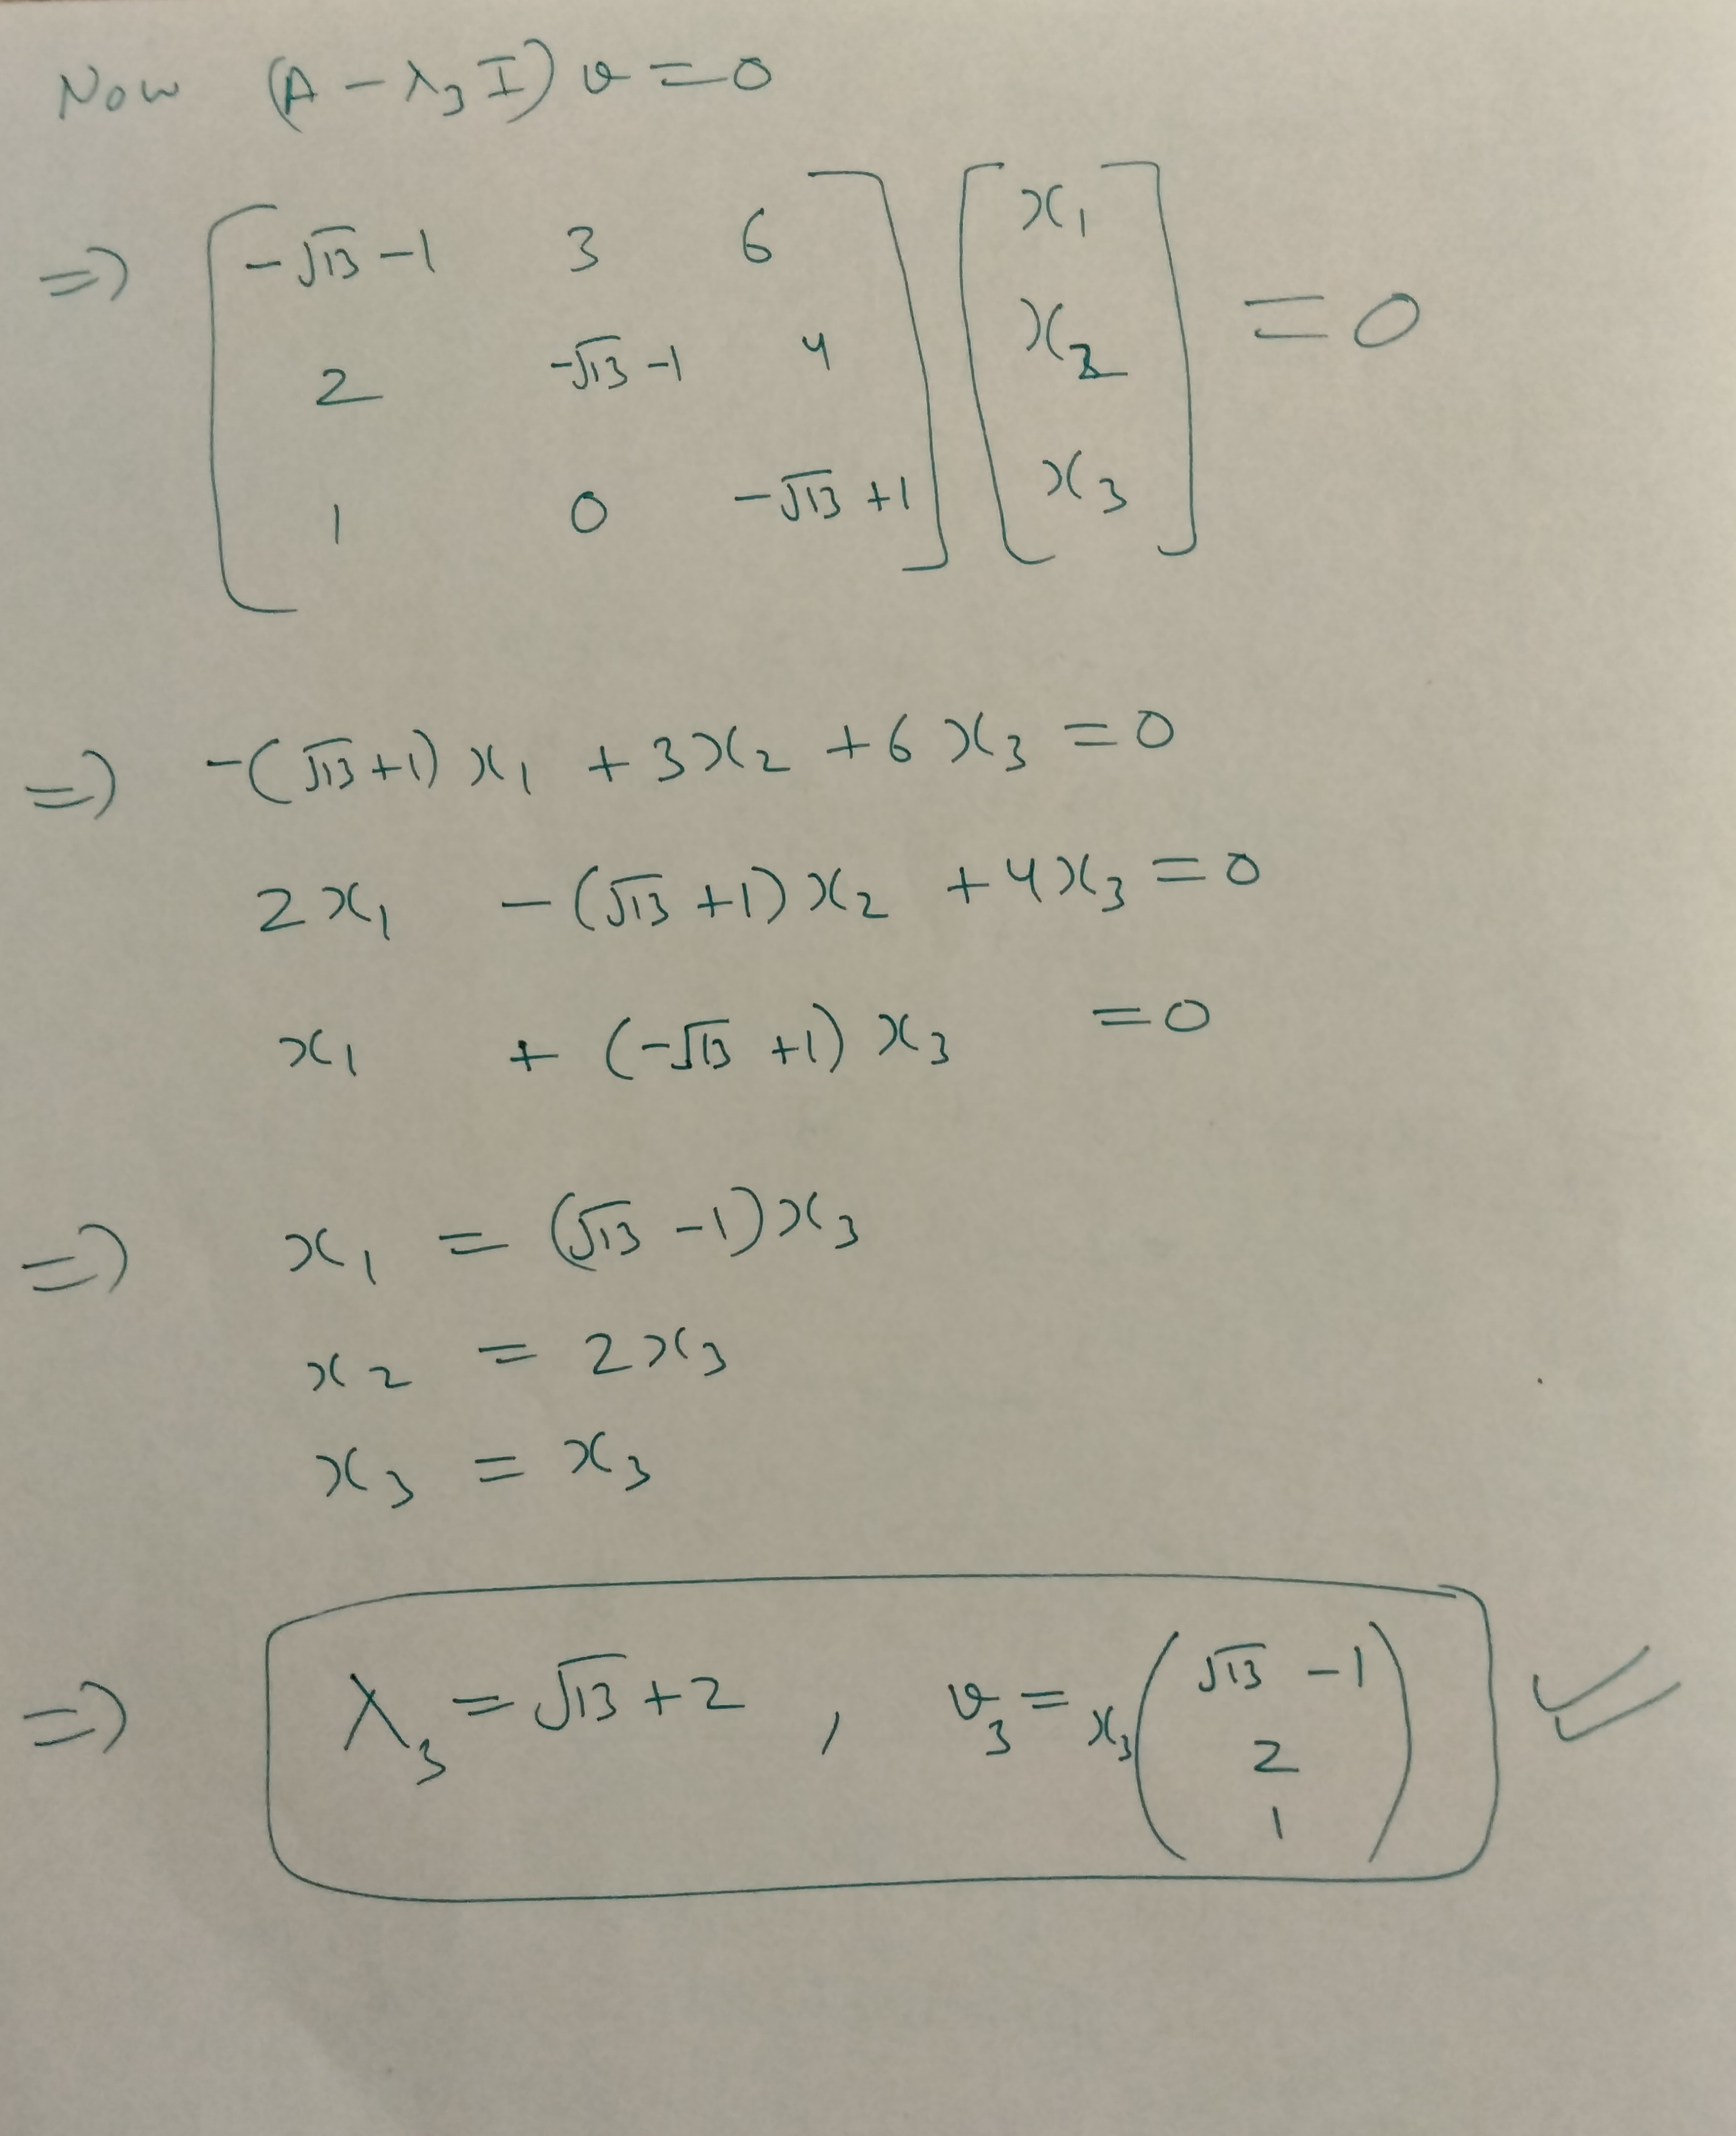 Now (A − λ₃ I) v = 0
⇒ [ −√13 −1   3   6 ] [ x₁ ]
[ 2   −√13 −1   4 ] [ x₂ ] = 0
[ 1   0   −√13 +1 ] [ x₃ ]
⇒ −(√13+1) x₁ + 3x₂ + 6x₃ = 0
2x₁ − (√13 +1) x₂ + 4x₃ = 0
x₁ + (−√13 +1) x₃ = 0
⇒ x₁ = (√13 −1)x₃
x₂ = 2x₃
x₃ = x₃
⇒ λ₃ = √13 + 2 , v₃ = x₃ ( √13 −1
2
1 ) ✓✓